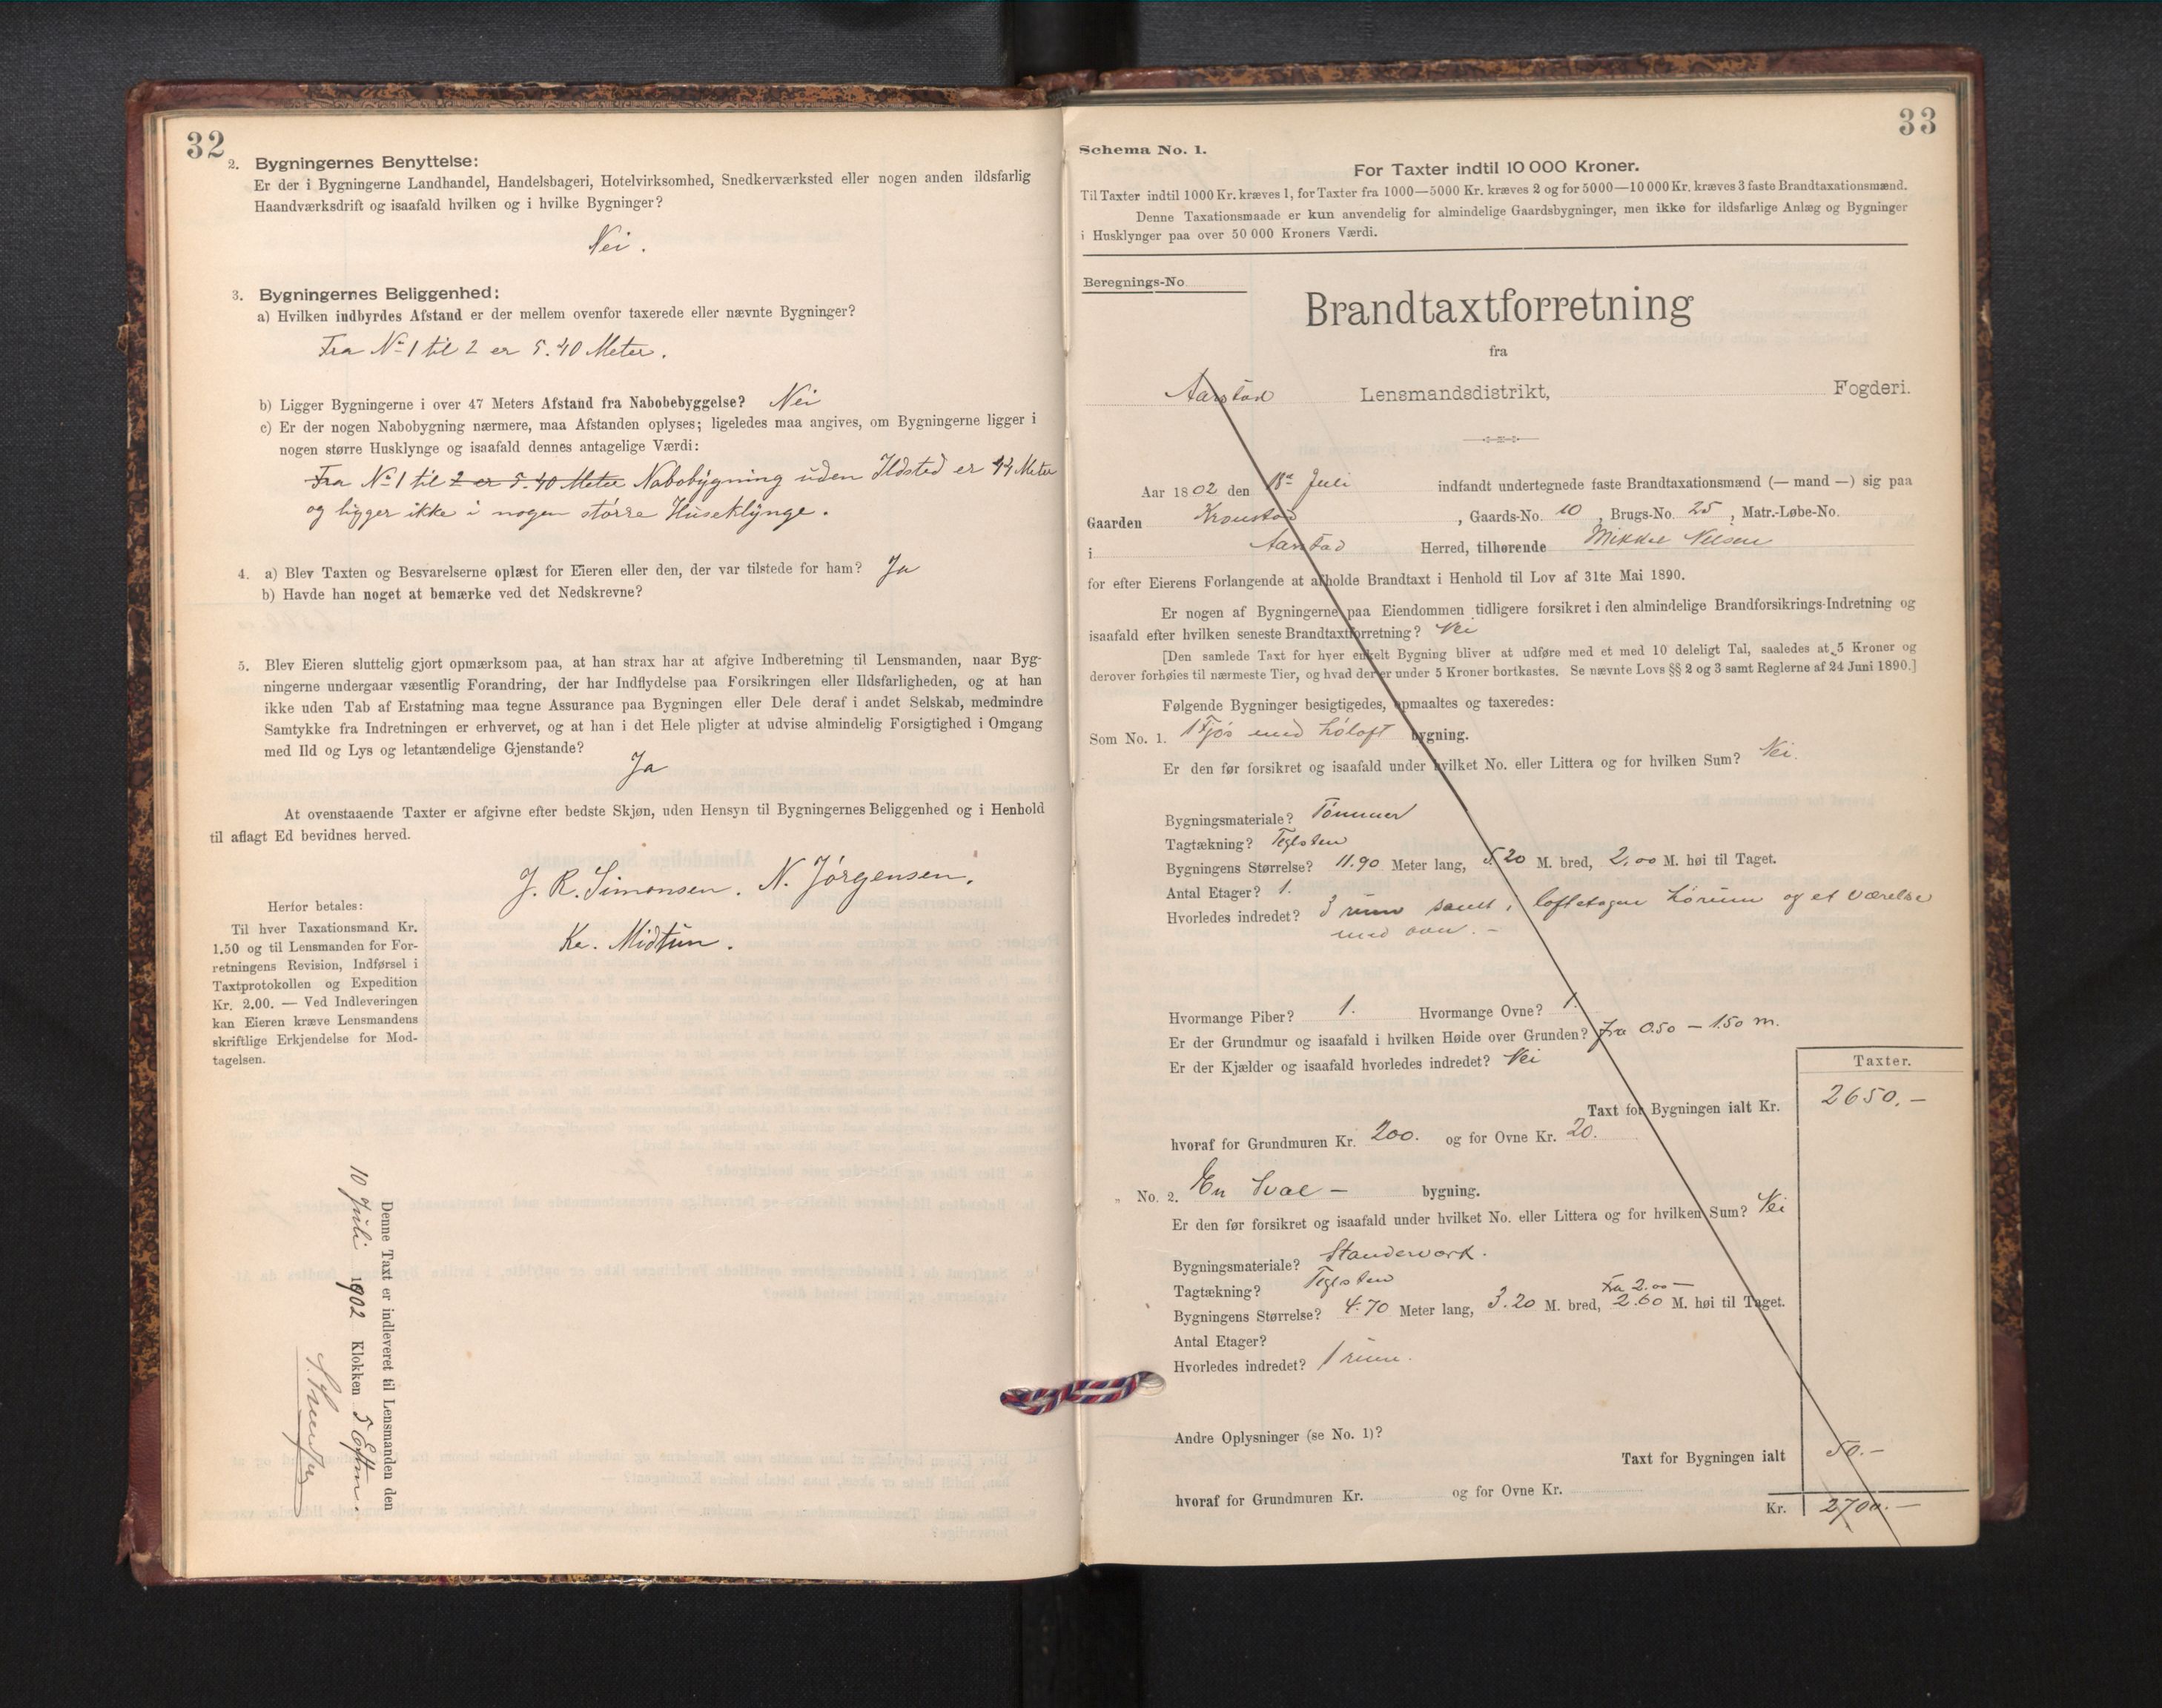 32
2. Bygningernes Benyttelse:
Er der i Bygningerne Landhandel, Handelsbageri, Hotelvirksomhed, Snedkerværksted eller nogen anden ildsfarlig
Haandværksdrift og isaafald hvilken og i hvilke Bygninger?
Nei.
3. Bygningernes Beliggenhed:
a) Hvilken indbyrdes Afstand er der mellem ovenfor taxerede eller nævnte Bygninger?
Fra No 1 til 2 er 5.40 Meter.
b) Ligger Bygningerne i over 47 Meters Afstand fra Nabobebyggelse? Nei
c) Er der nogen Nabobygning nærmere, maa Afstanden oplyses; ligeledes maa angives, om Bygningerne ligger i
nogen større Husklynge og isaafald dennes antagelige Værdi:
Fra No 1 til 2 er 5.40 Meter Nabobygning uden Ildsted er 44 Meter
og ligger ikke i nogen større Huseklynge.
4. a) Blev Taxten og Besvarelserne oplæst for Eieren eller den, der var tilstede for ham? Ja
b) Havde han noget at bemærke ved det Nedskrevne?
5. Blev Eieren sluttelig gjort opmærksom paa, at han strax har at afgive Indberetning til Lensmanden, naar Byg-
ningerne undergaar væsentlig Forandring, der har Indflydelse paa Forsikringen eller Ildsfarligheden, og at han
ikke uden Tab af Erstatning maa tegne Assurance paa Bygningen eller Dele deraf i andet Selskab, medmindre
Samtykke fra Indretningen er erhvervet, og at han i det Hele pligter at udvise almindelig Forsigtighed i Omgang
med Ild og Lys og letantændelige Gjenstande?
Ja
At ovenstaaende Taxter er afgivne efter bedste Skjøn, uden Hensyn til Bygningernes Beliggenhed og i Henhold
til aflagt Ed bevidnes herved.
J. R. Simonsen. N. Jørgensen.
Ka. Midtun.
Herfor betales:
Til hver Taxationsmand Kr.
1.50 og til Lensmanden for For-
retningens Revision, Indførsel i
Taxtprotokollen og Expedition
Kr. 2.00. — Ved Indleveringen
kan Eieren kræve Lensmandens
skriftlige Erkjendelse for Mod-
tagelsen.
Denne Taxt er indleveret til Lensmanden den
10 Juli 1902 Klokken 5 Eftm.
33
Schema No. 1.
For Taxter indtil 10 000 Kroner.
Til Taxter indtil 1000 Kr. kræves 1, for Taxter fra 1000—5000 Kr. kræves 2 og for 5000—10 000 Kr. kræves 3 faste Brandtaxationsmænd.
Denne Taxationsmaade er kun anvendelig for almindelige Gaardsbygninger, men ikke for ildsfarlige Anlæg og Bygninger
i Husklynger paa over 50 000 Kroners Værdi.
Beregnings-No.
Brandtaxtforretning
fra
Aarstad Lensmandsdistrikt, Fogderi.
Aar 1802 den 18de Juli indfandt undertegnede faste Brandtaxationsmænd (— mand —) sig paa
Gaarden Kronstad, Gaards-No. 10, Brugs-No. 25, Matr.-Løbe-No.
i Aarstad Herred, tilhørende Mikkel Nilsen
for efter Eierens Forlangende at afholde Brandtaxt i Henhold til Lov af 31te Mai 1890.
Er nogen af Bygningerne paa Eiendommen tidligere forsikret i den almindelige Brandforsikrings-Indretning og
isaafald efter hvilken seneste Brandtaxtforretning? Nei
[Den samlede Taxt for hver enkelt Bygning bliver at udføre med et med 10 deleligt Tal, saaledes at 5 Kroner og
derover forhøies til nærmeste Tier, og hvad der er under 5 Kroner bortkastes. Se nævnte Lovs §§ 2 og 3 samt Reglerne af 24 Juni 1890.]
Følgende Bygninger besigtigedes, opmaaltes og taxeredes:
Som No. 1. 1 Fjøs med Høloft bygning.
Er den før forsikret og isaafald under hvilket No. eller Littera og for hvilken Sum? Nei.
Bygningsmateriale? Tømmer
Tagtækning? Teglsten
Bygningens Størrelse? 11.90 Meter lang, 5.20 M. bred, 2.00 M. høi til Taget.
Antal Etager? 1.
Hvorledes indredet? 3 rum samt i loftetagen Hørum og et værelse
med ovn. -
Hvormange Piber? 1. Hvormange Ovne? 1.
Er der Grundmur og isaafald i hvilken Høide over Grunden? fra 0.50 - 1.50 m.
Er der Kjælder og isaafald hvorledes indredet? Nei
Taxter.
Taxt for Bygningen ialt Kr. 2650.-
hvoraf for Grundmuren Kr. 200. og for Ovne Kr. 20.
" No. 2. En Sval - bygning.
Er den før forsikret og isaafald under hvilket No. eller Littera og for hvilken Sum? Nei
Bygningsmateriale? Standerverk.
Tagtækning? Teglsten
Fra 2.00 -
Bygningens Størrelse? 4.70 Meter lang, 3.20 M. bred, 2.60 M. høi til Taget.
Antal Etager?
Hvorledes indredet? 1 rum.
Andre Oplysninger (se No. 1)?
Taxt for Bygningen ialt 50.-
hvoraf for Grundmuren Kr. og for Ovne Kr.
Kr. 2700.-